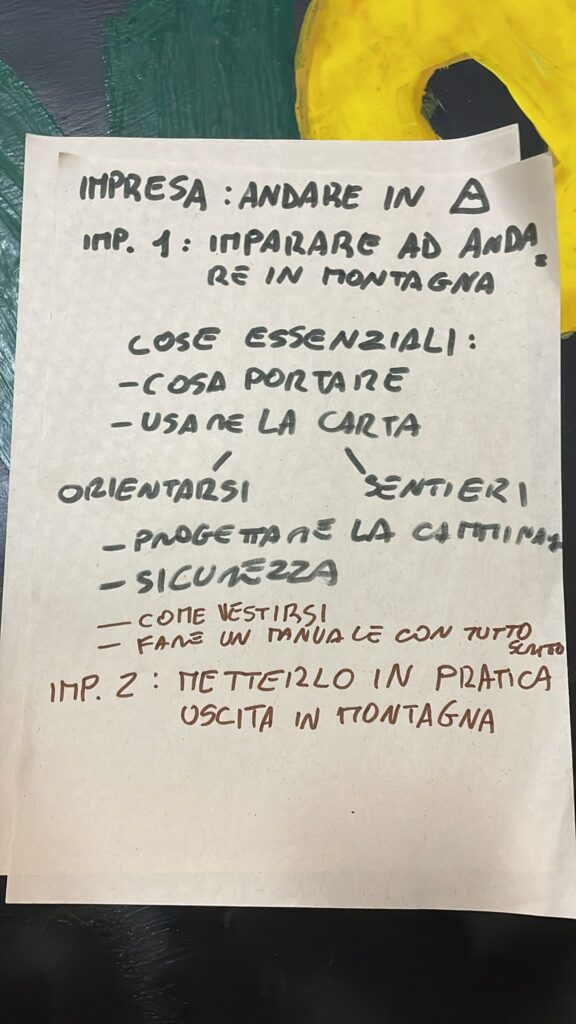 IMPRESA : ANDARE IN
IMP. 1 : IMPARARE AD ANDA
RE IN MONTAGNA
COSE ESSENZIALI :
- COSA PORTARE
- USARE LA CARTA
ORIENTARSI SENTIERI
- PROGETTARE LA CAMMINATA
- SICUREZZA
- COME VESTIRSI
- FARE UN MANUALE CON TUTTO
SCRITTO
IMP. 2 : METTERLO IN PRATICA
USCITA IN MONTAGNA